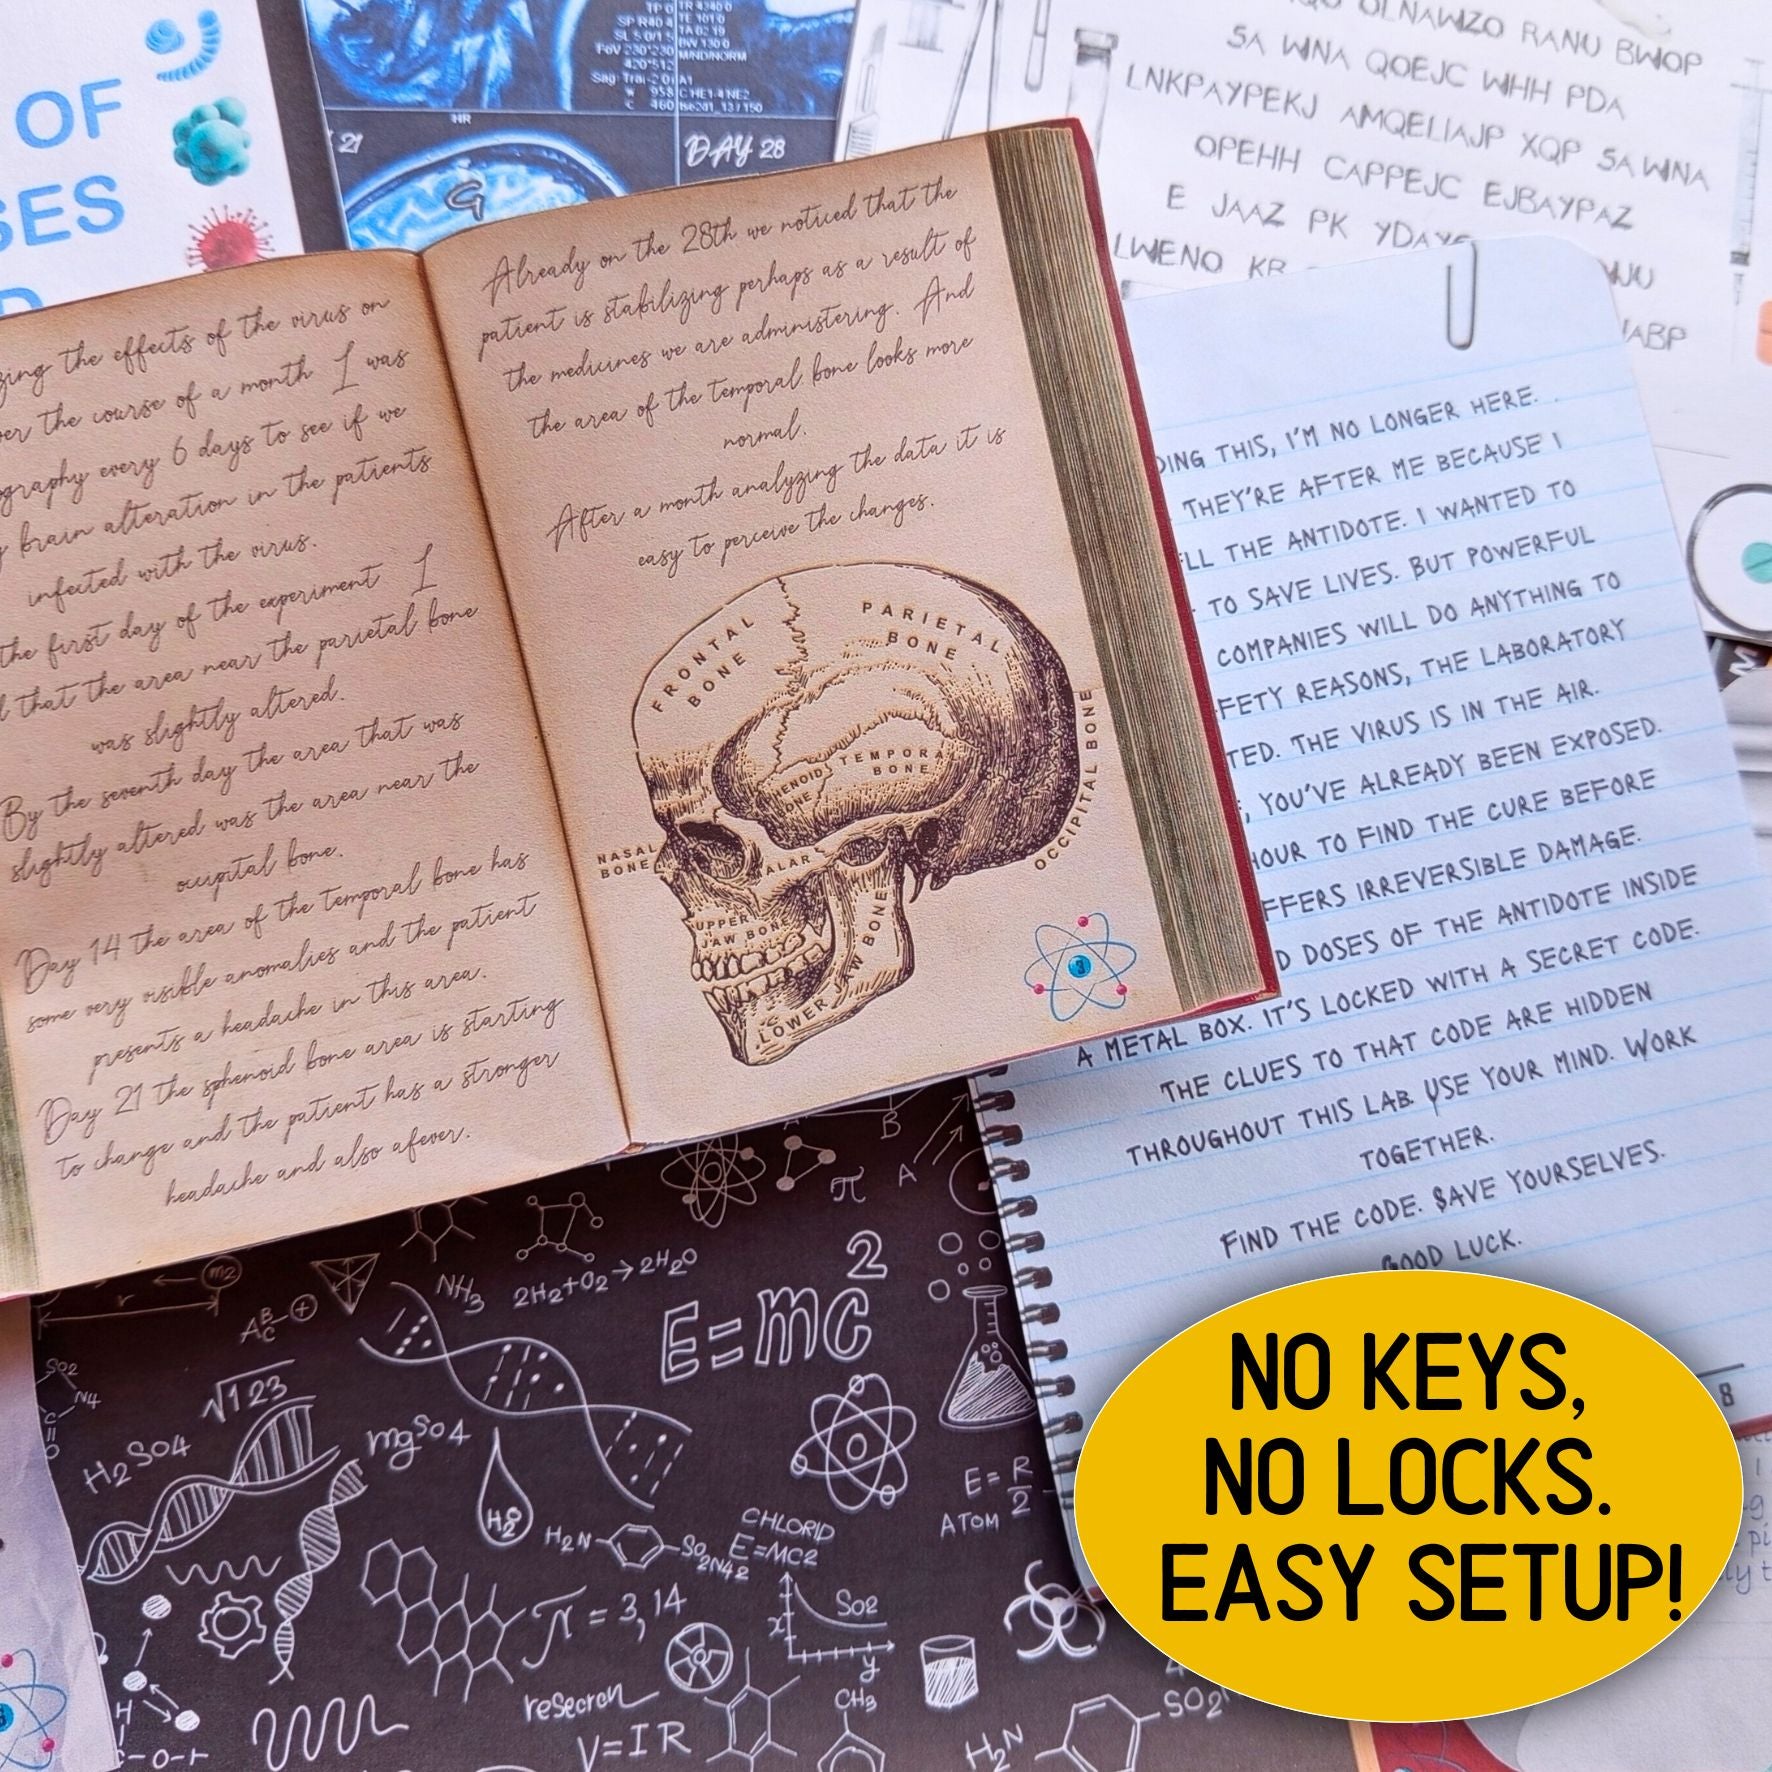 OF
SES
D
TP 0
SP R40.4
SL 5.0/1.5
FoV 230*230
420*512
Sag: Tra
W 958
C 460
TR 4340.0
TE 101.0
TA 02:19
BW 130.0
M/ND/NORM
A1
21
HR
DAY 28
G
OLNAWZO RANU BWOP
SA WNA QOEJC WHH PDA
LNKPAYPEKJ AMQELIAJP XQP SA WNA
OPEHH CAPPEJC EJBAYPAZ
E JAAZ PK
LWENO KB
zing the effects of the virus on
er the course of a month I was
ography every 6 days to see if we
brain alteration in the patients
infected with the virus.
the first day of the experiment I
that the area near the parietal bone
was slightly altered.
By the seventh day the area that was
slightly altered was the area near the
occipital bone.
Day 14 the area of the temporal bone has
some very visible anomalies and the patient
presents a headache in this area.
Day 21 the sphenoid bone area is starting
to change and the patient has a stronger
headache and also afever.
Already on the 28th we noticed that the
patient is stabilizing perhaps as a result of
the medicines we are administering. And
the area of the temporal bone looks more
normal.
After a month analyzing the data it is
easy to perceive the changes.
FRONTAL
BONE
PARIETAL
BONE
TEMPORA
BONE
HENOID
ONE
OCCIPITAL BONE
NASAL
BONE
ALAR
UPPER
JAW BONE
LOWER JAW BONE
3
DING THIS, I'M NO LONGER HERE.
THEY'RE AFTER ME BECAUSE I
LL THE ANTIDOTE. I WANTED TO
TO SAVE LIVES. BUT POWERFUL
COMPANIES WILL DO ANYTHING TO
FETY REASONS, THE LABORATORY
TED. THE VIRUS IS IN THE AIR.
, YOU'VE ALREADY BEEN EXPOSED.
HOUR TO FIND THE CURE BEFORE
FFERS IRREVERSIBLE DAMAGE.
D DOSES OF THE ANTIDOTE INSIDE
A METAL BOX. IT'S LOCKED WITH A SECRET CODE.
THE CLUES TO THAT CODE ARE HIDDEN
THROUGHOUT THIS LAB. USE YOUR MIND. WORK
TOGETHER.
FIND THE CODE. SAVE YOURSELVES.
GOOD LUCK.
8
B
A
π
m2
r
NH3
2H2+O2→2H2O
E=mc2
√123
SO2
N4
H2SO4
mgSO4
H2O
H2N
SO2N42
CHLORID
E=MC2
E=R/2
ATOM
π=3,14
SO2
x
y
research
V=IR
CH3
H2N
SO2
NO KEYS,
NO LOCKS.
EASY SETUP!